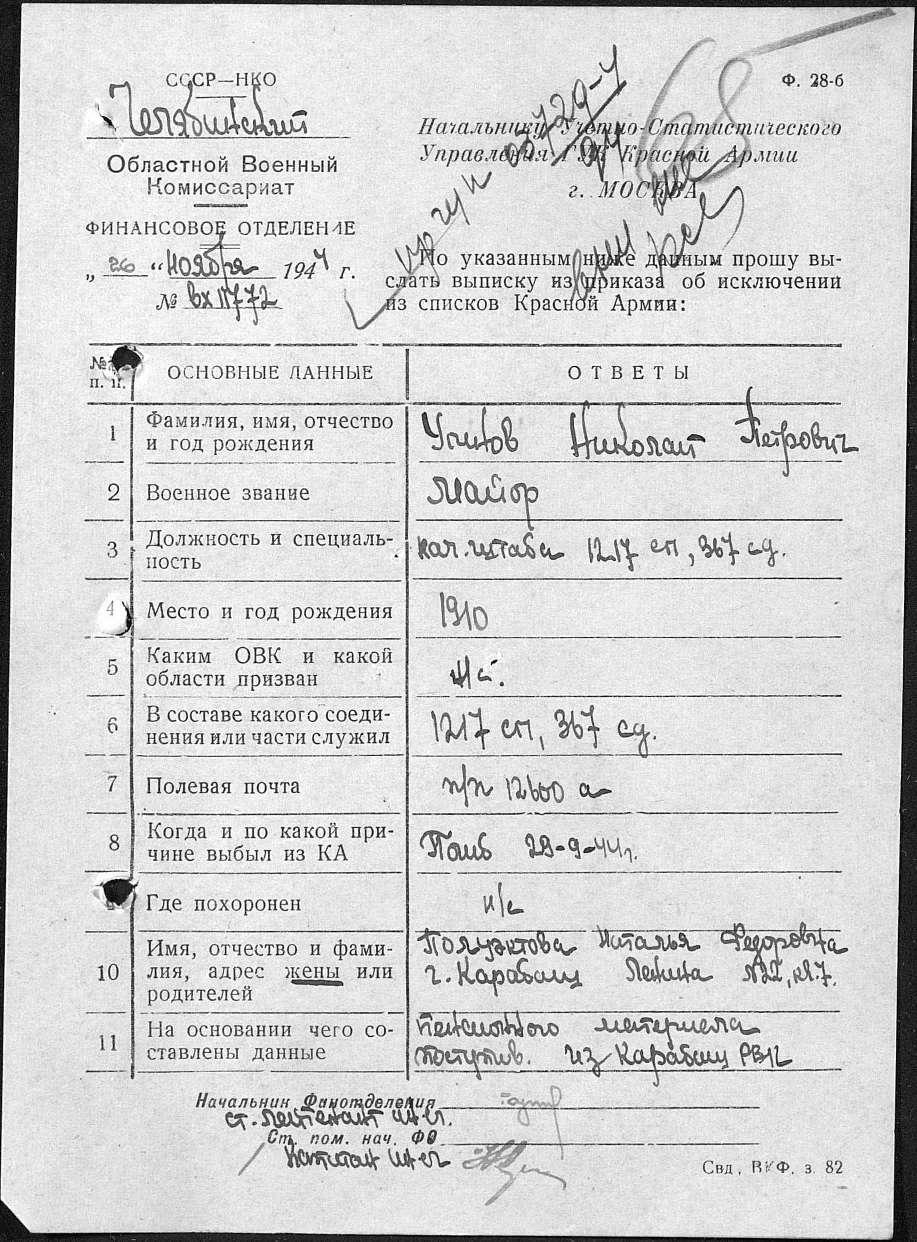 СССР—НКО
Челябинский
Областной Военный
Комиссариат
ФИНАНСОВОЕ ОТДЕЛЕНИЕ
„ 26 “ ноября 1944 г.
№ вх 11772
Ф. 28-б
68
05729-4
Начальнику Учетно-Статистического
Управления ГУК Красной Армии
г. МОСКВА
По указанным ниже данным прошу вы-
слать выписку из приказа об исключении
из списков Красной Армии:
№ п. п. ОСНОВНЫЕ ДАННЫЕ ОТВЕТЫ
1 Фамилия, имя, отчество
и год рождения
Николай Петрович
2 Военное звание Майор
3 Должность и специаль-
ность
нач. штаба 1217 сп, 367 сд.
4 Место и год рождения 1910
5 Каким ОВК и какой
области призван
6 В составе какого соеди-
нения или части служил
1217 сп, 367 сд.
7 Полевая почта п/п 12600 а
8 Когда и по какой при-
чине выбыл из КА
Погиб 29-9-44 г.
Где похоронен н/с
10 Имя, отчество и фами-
лия, адрес жены или
родителей
Полуэктова Наталья Федоровна
г. Карабаш Ленина
11 На основании чего со-
ставлены данные
пенсионного материала
поступив. из Карабаш РВК
Начальник Финотделения
ст. лейтенант
Ст. пом. нач. ФО
Капитан
Свд, ВКФ. з. 82